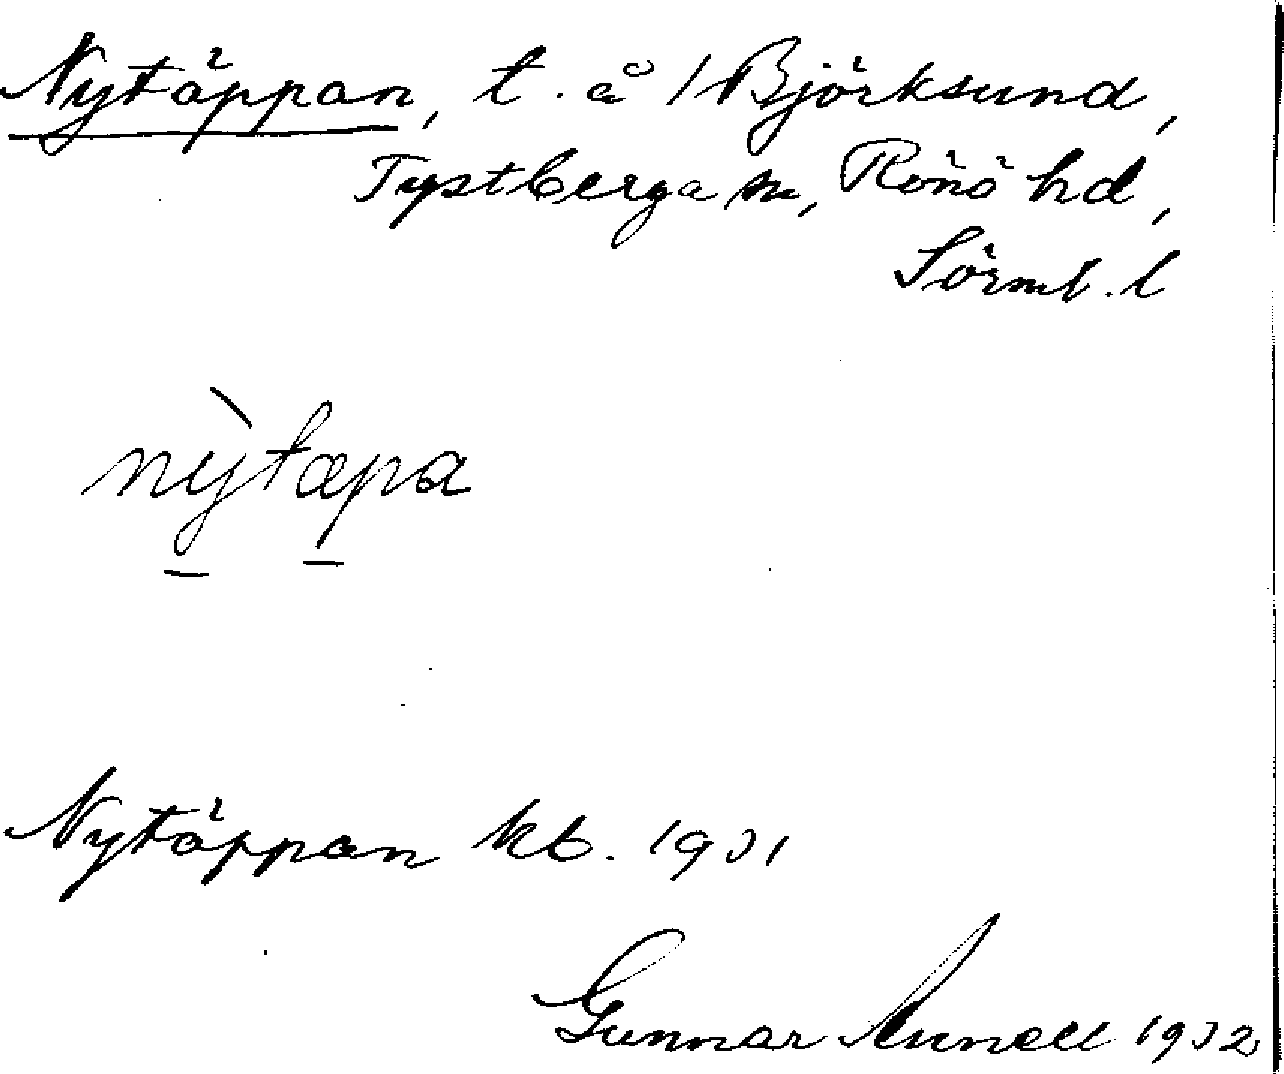 Nytäppan, t. å /Björksund,
Tystberga sn, Rönö hd,
Sörml. l
nỳtæpa
Nytäppan kb. 1931
Gunnar 1932